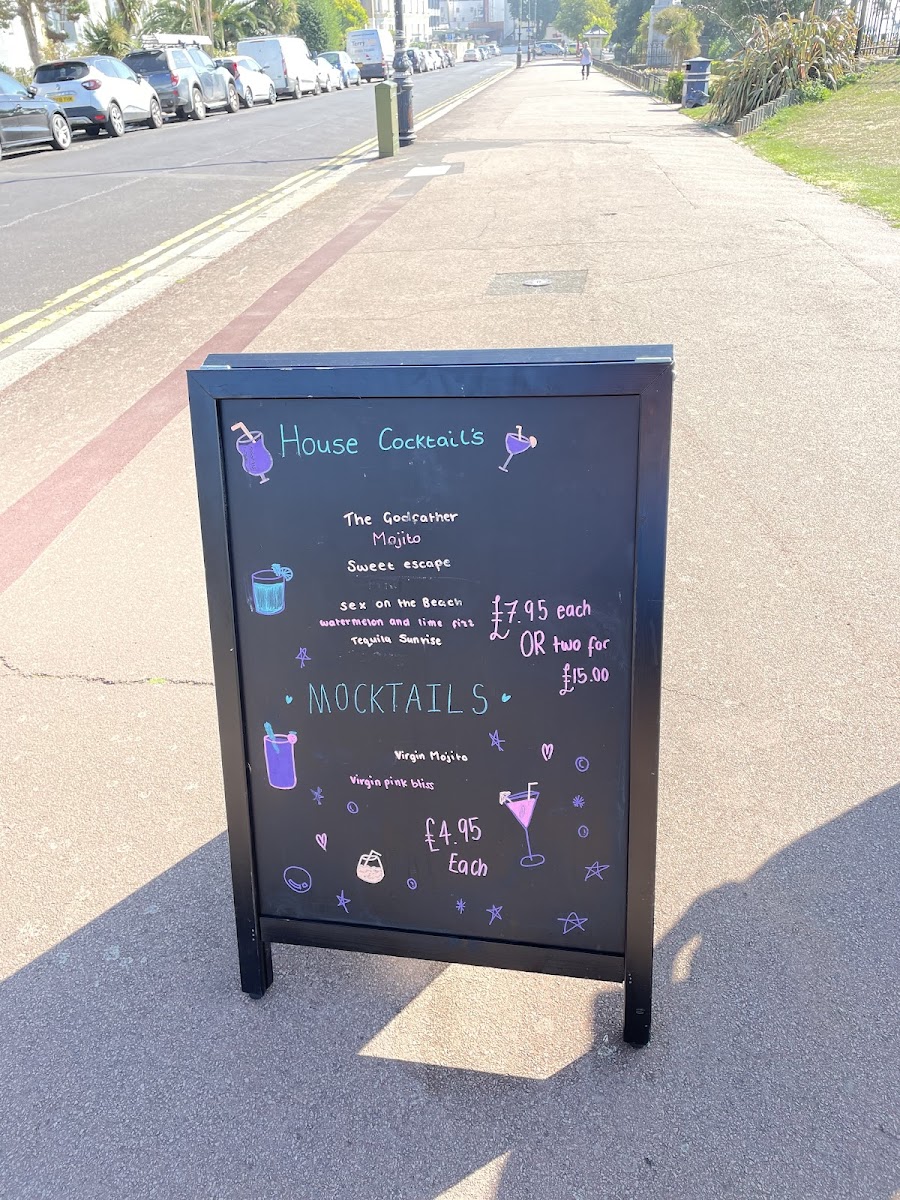 House Cocktail's
The Godfather
Mojito
Sweet escape
sex on the Beach
watermelon and lime fizz
Tequila Sunrise
£7.95 each
OR two for
£15.00
MOCKTAILS
Virgin Mojito
Virgin pink bliss
£4.95
Each